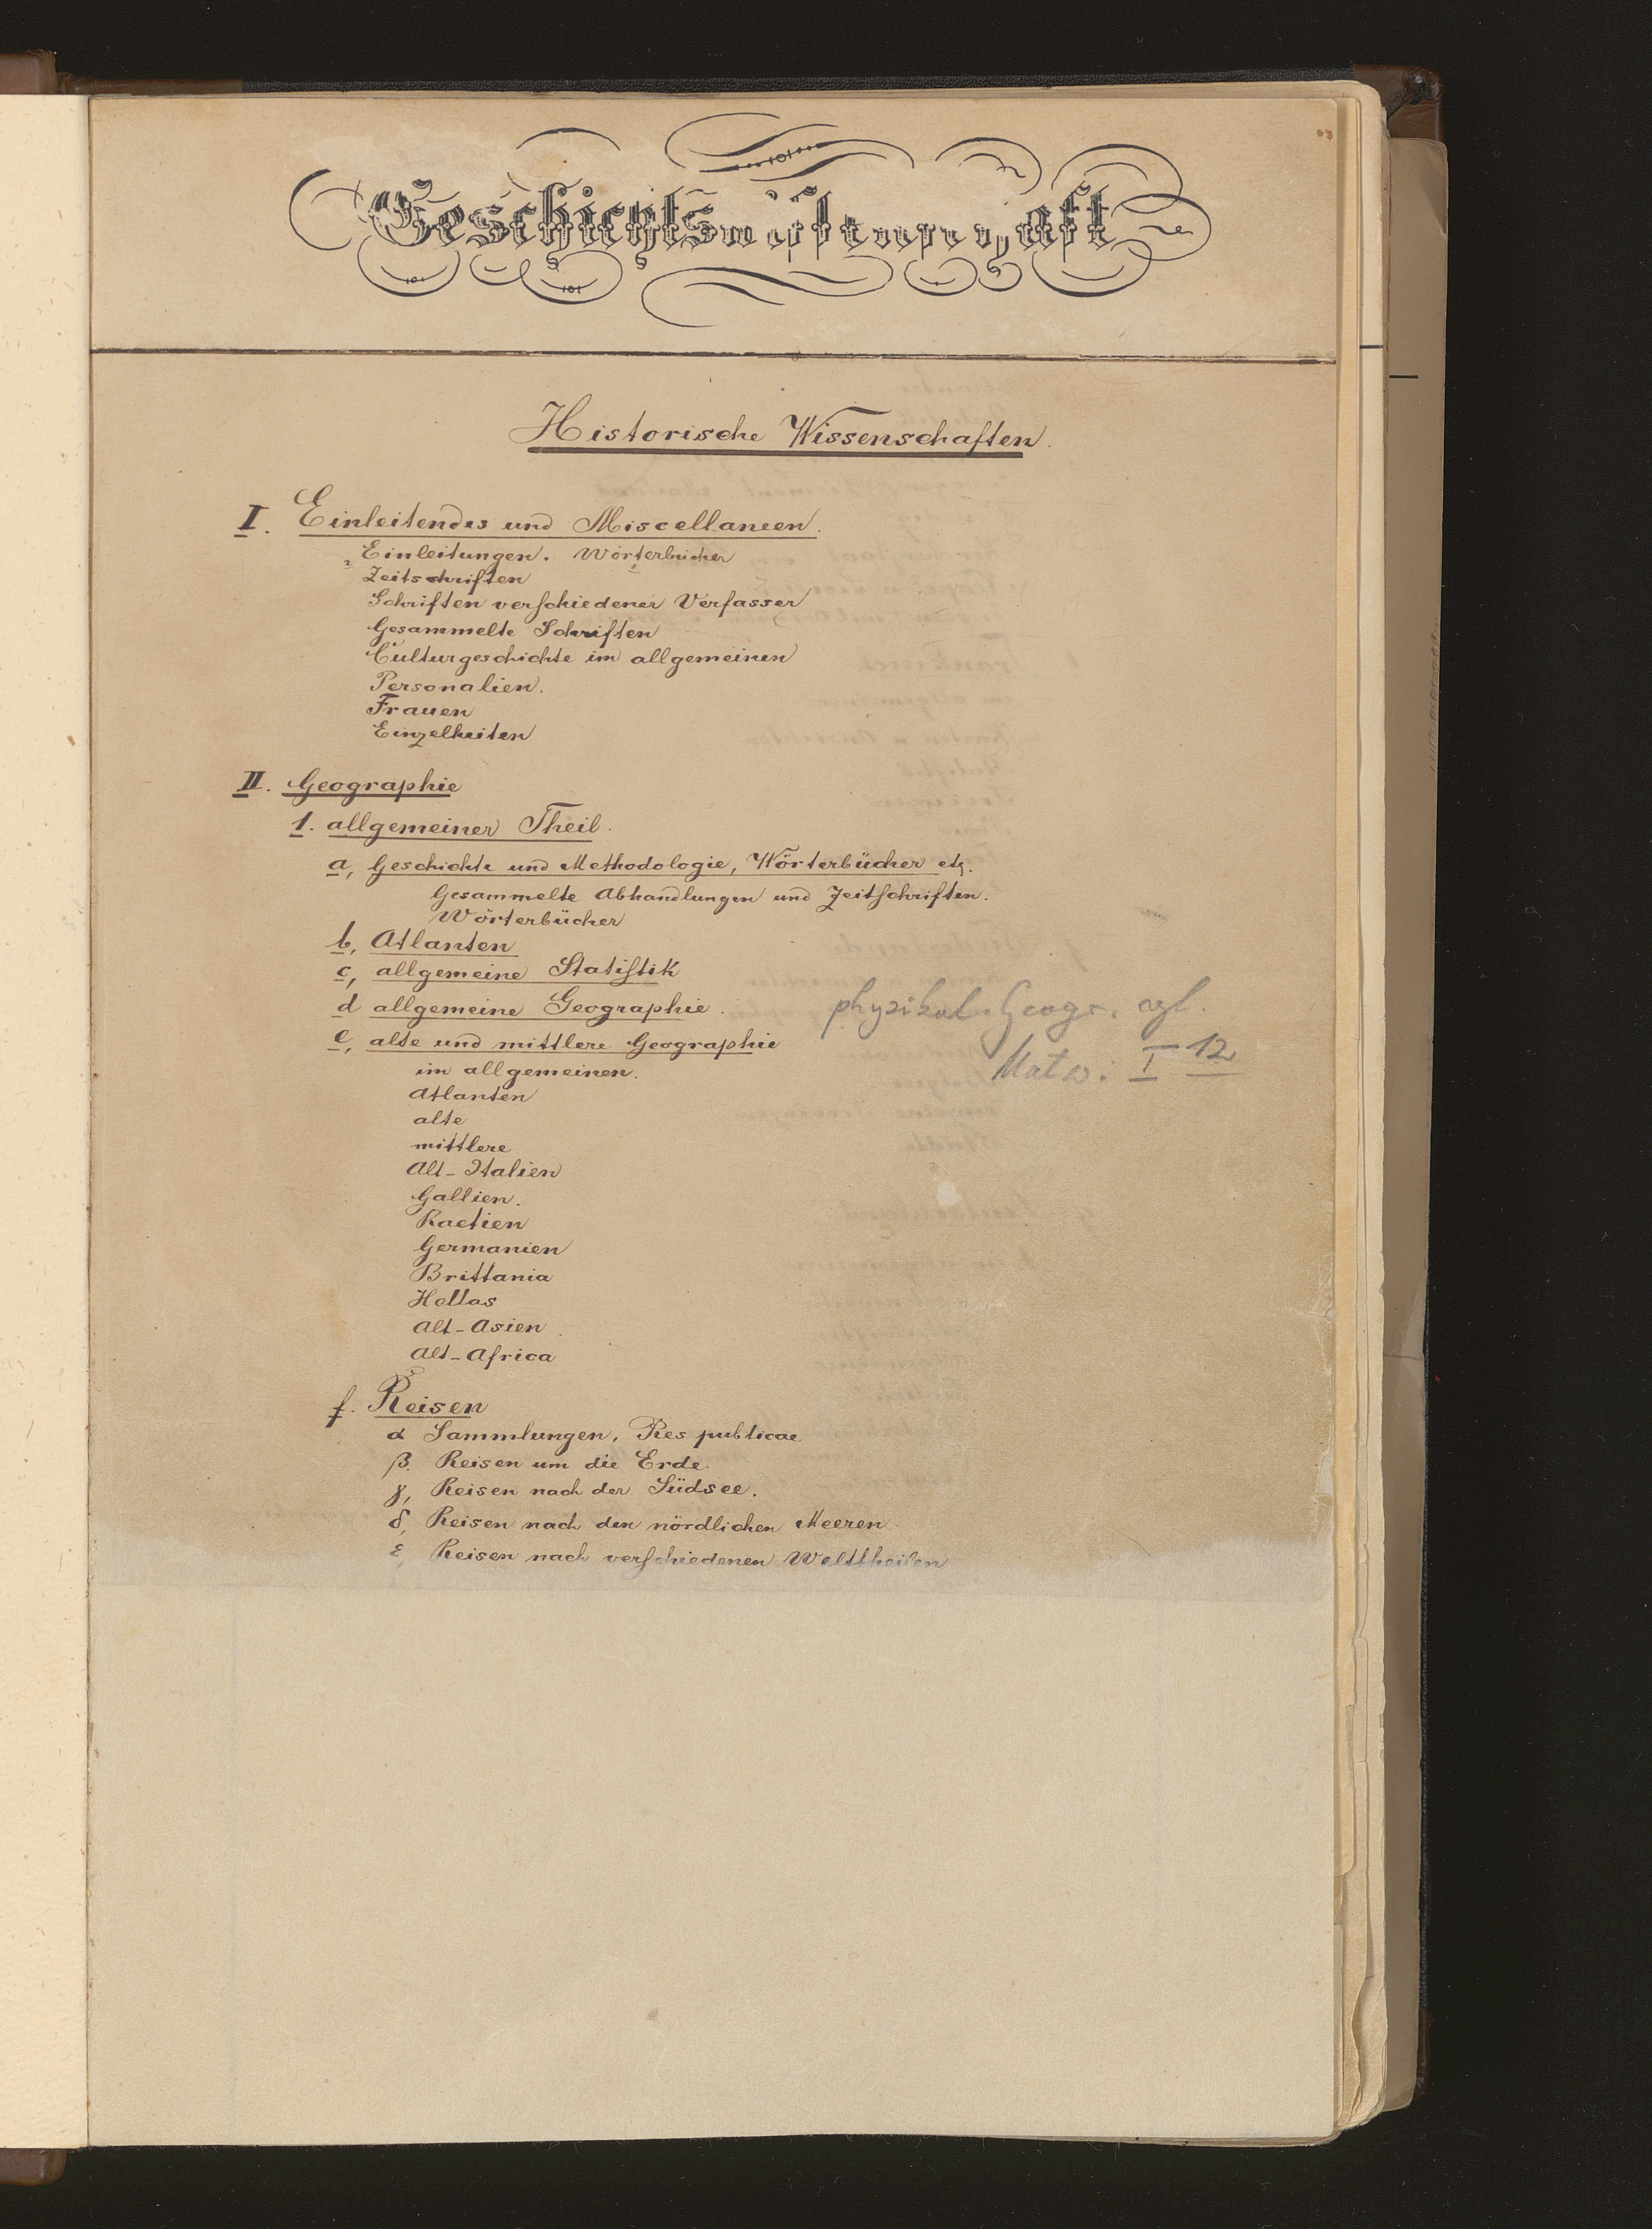 Geschichtswissenschaft
Historische Wissenschaften.
I. Einleitendes und Miscellaneen.
Einleitungen. Wörterbücher
Zeitschriften
Schriften verschiedener Verfasser
Gesammelte Schriften
Culturgeschichte im allgemeinen
Personalien.
Frauen
Einzelheiten
II. Geographie
1. allgemeiner Theil.
a, Geschichte und Methodologie, Wörterbücher etz.
Gesammelte Abhandlungen und Zeitschriften.
Wörterbücher
b, Atlanten
c, allgemeine Statistik
d allgemeine Geographie. physikal. Geogr. vgl.
Matw: I 12
e, alte und mittlere Geographie
im allgemeinen.
Atlanten
alte
mittlere
Alt-Italien
Gallien.
Raetien
Germanien
Brittania
Hellas
Alt-Asien
Alt-Africa
f. Reisen
α Sammlungen, Res publicae
β. Reisen um die Erde
γ, Reisen nach der Südsee.
δ, Reisen nach den nördlichen Meeren
ε, Reisen nach verschiedenen Welttheilen